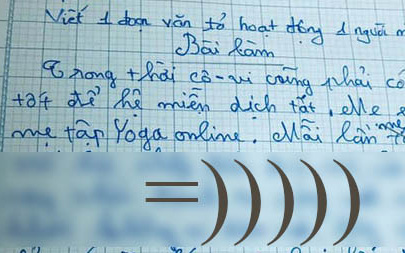 Viết 1 đoạn văn tả hoạt động 1 người
Bài làm
Trong thời cô-vi cũng phải có
tốt để hệ miễn dịch tốt, Mẹ
mẹ tập Yoga online. Mỗi lần mẹ
=)))))